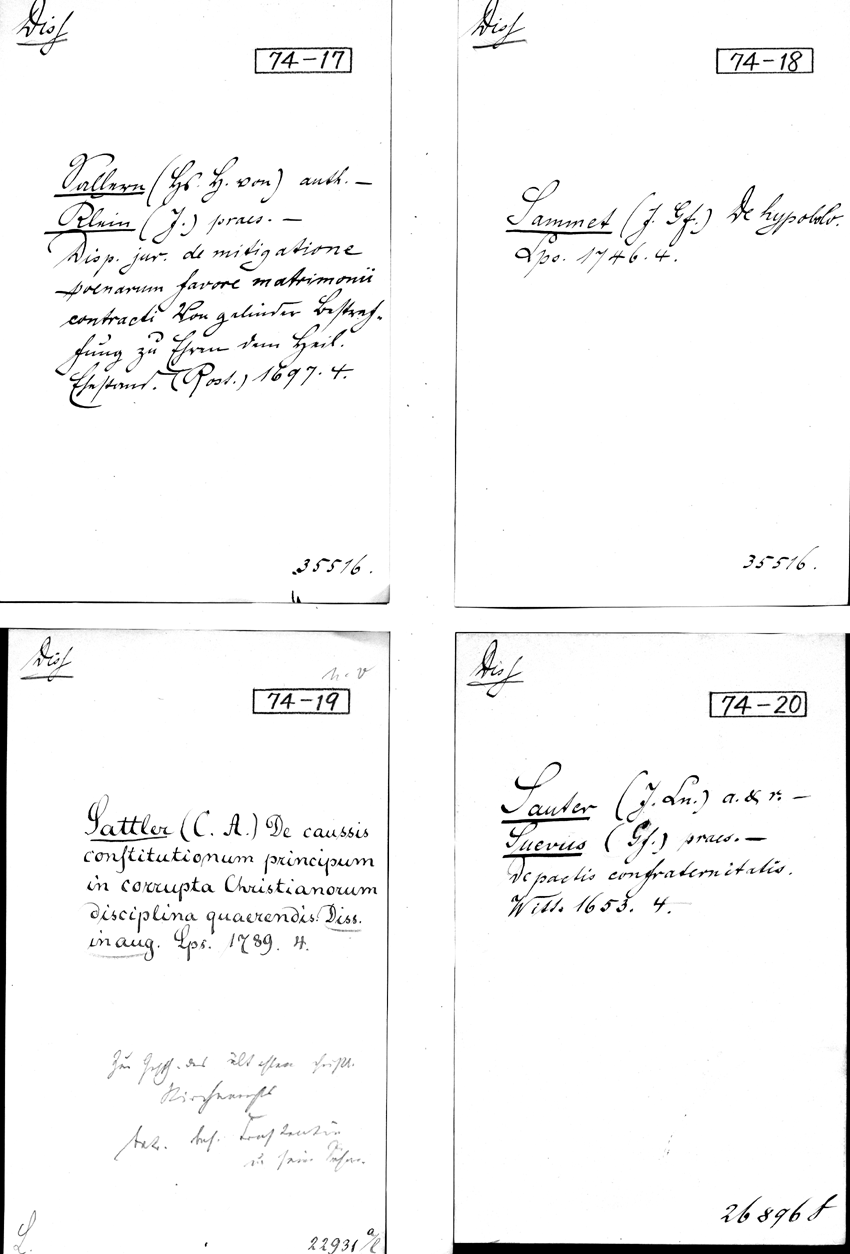 Diss
74-17
Sallern (Hs. H. von) auth. —
Klein (J.) praes. —
Disp. jur. de mitigatione
poenarum favore matrimonii
contracti Von gelinder Bestraf-
fung zu Ehren dem Heil.
Ehestand. (Rost.) 1697. 4.
35516.
Diss
74-18
Sammet (J. Gf.) De hypobolo.
Lps. 1746. 4.
35516.
Diss
n. v
74-19
Sattler (C. A.) De caussis
constitutionum principum
in corrupta Christianorum
disciplina quaerendis. Diss.
inaug. Lps. 1789. 4.
Zur Gesch. des ältesten christl.
Kirchenrechts
betr. bes. Constantin
u sein Söhne.
L.
22931 a/l
Diss
74-20
Sauter (J. Ln.) a. & r. —
Suevus (Gf.) praes. —
De pactis confraternitatis.
Witt. 1653. 4.
26896 f